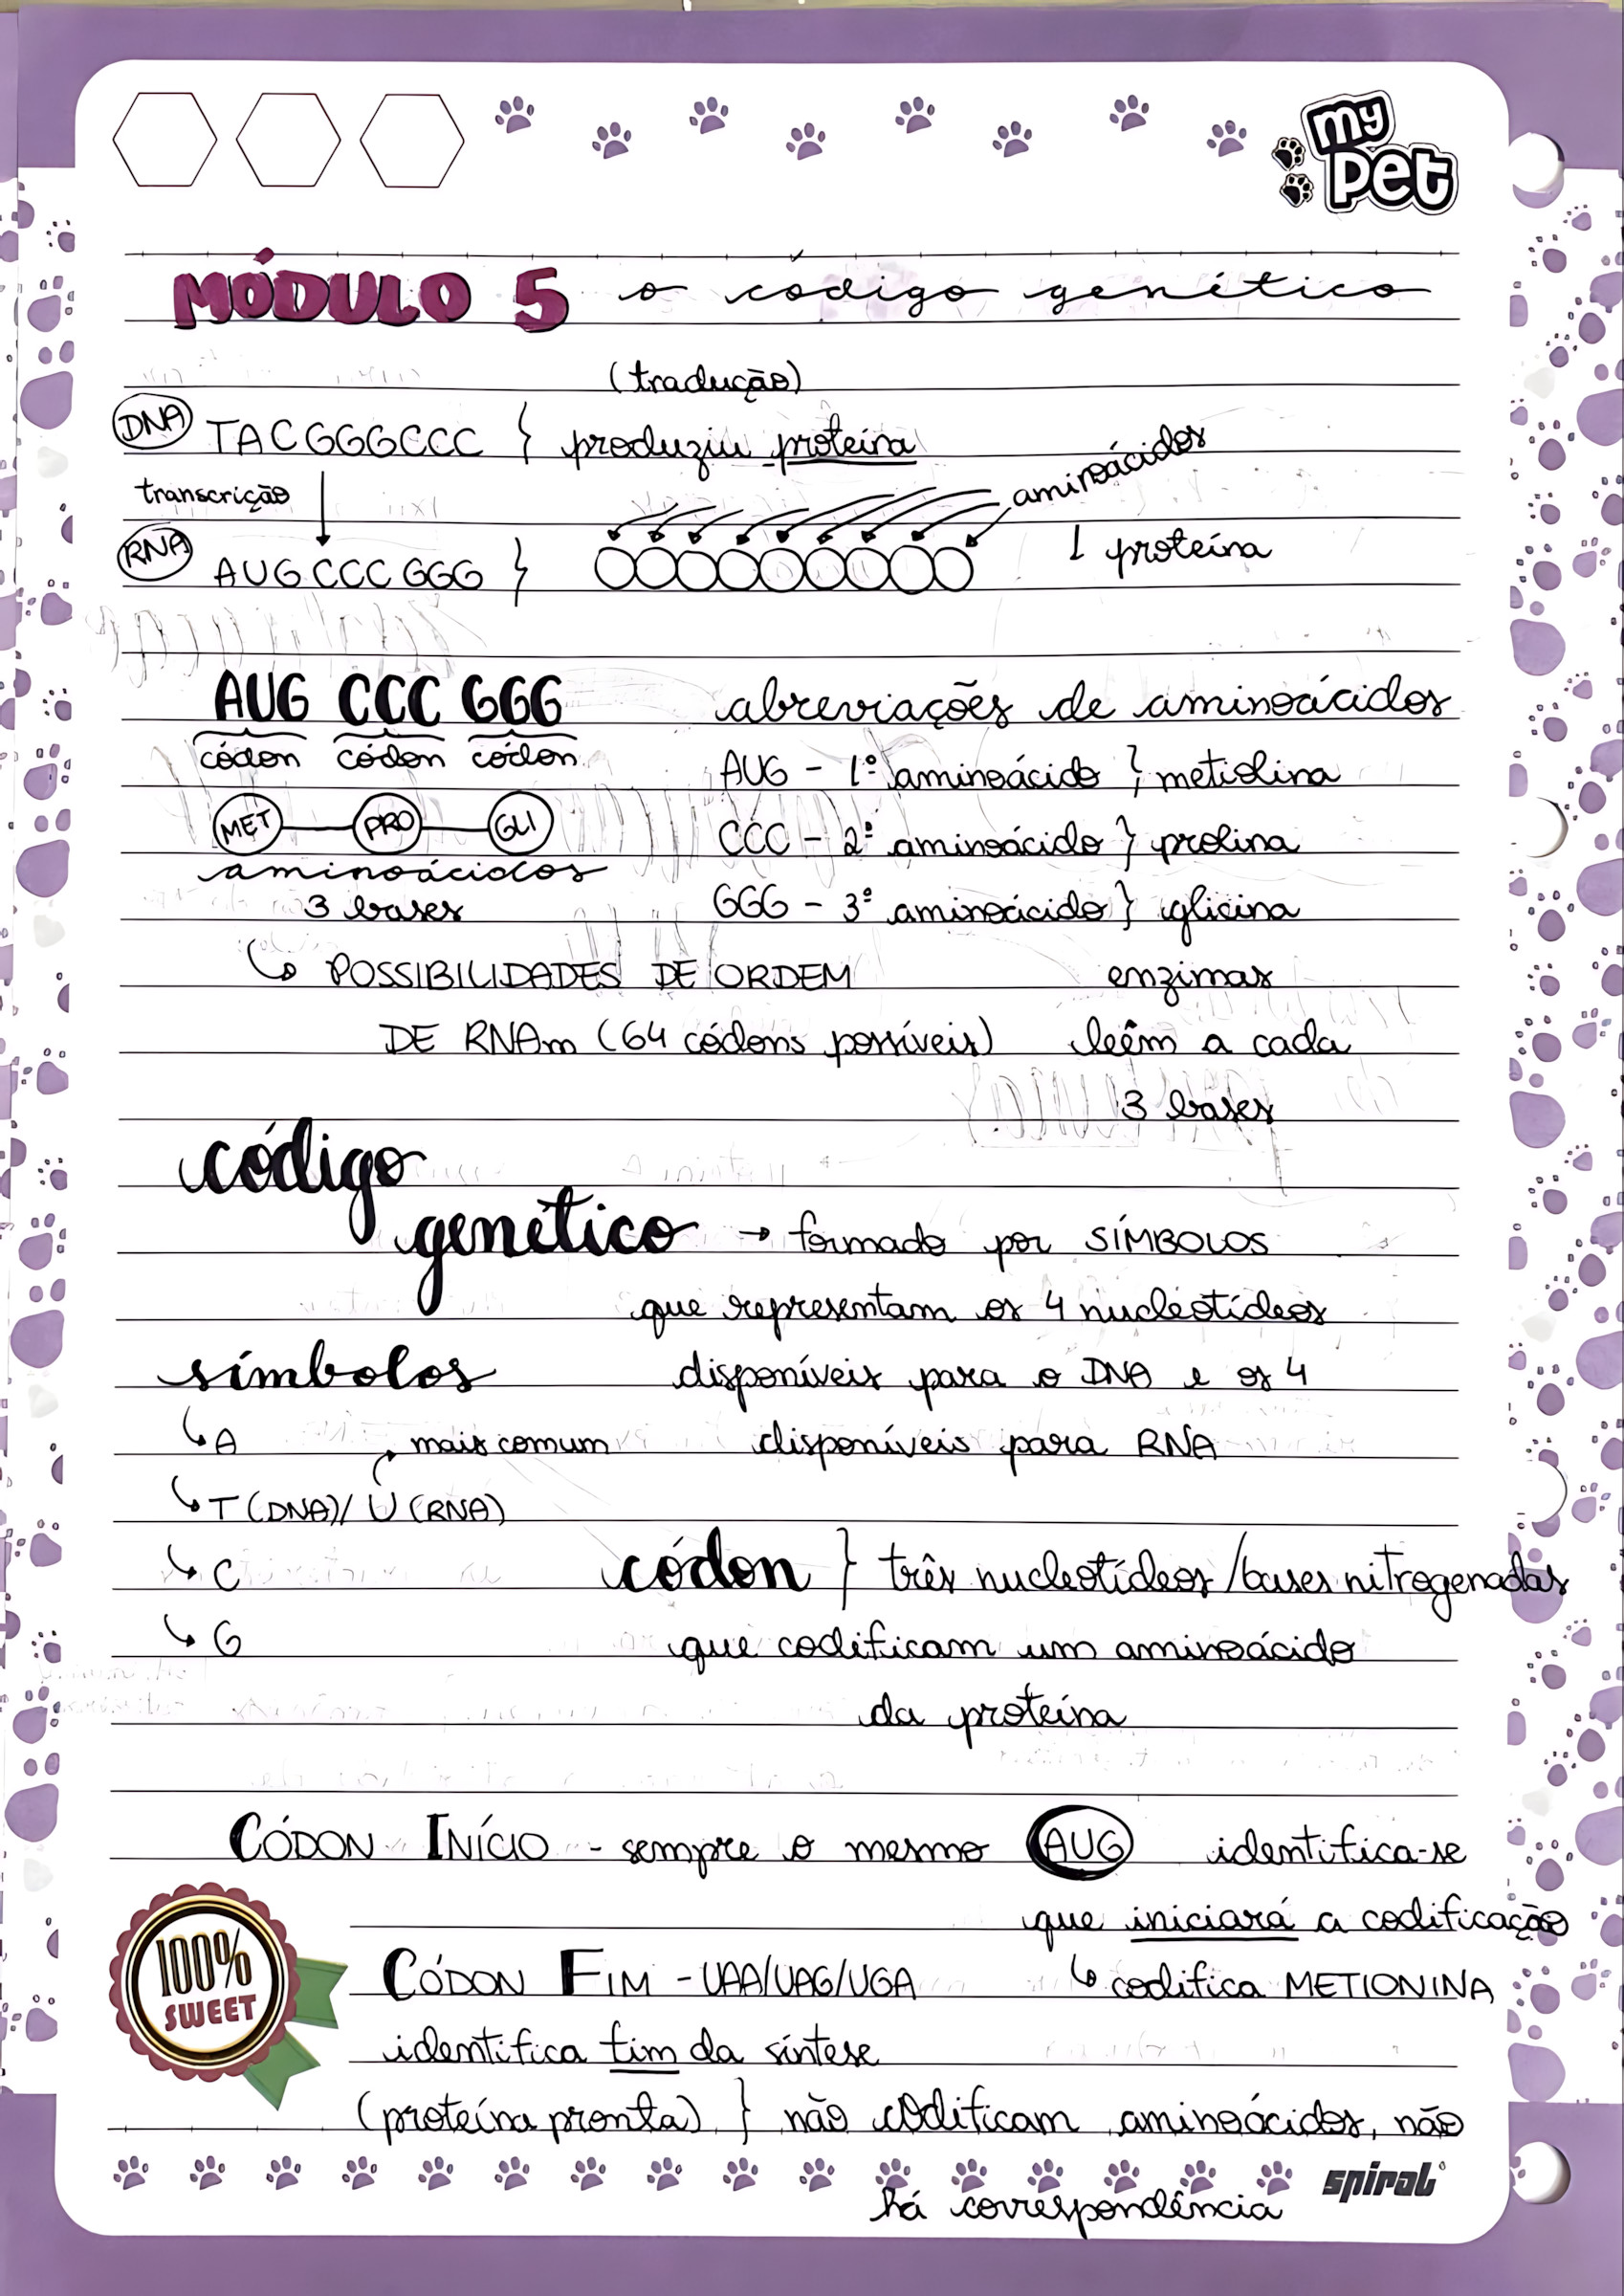 my
pet
MÓDULO 5 o código genético
(tradução)
DNA TACGGGCCC } produziu proteína
aminoácidos
transcrição
RNA AUGCCCGGG } 1 proteína
AUG CCC GGG abreviações de aminoácidos
códon códon códon AUG - 1º aminoácido } metiolina
MET PRO GLI CCC - 2º aminoácido } prolina
aminoácidos
3 bases GGG - 3º aminoácido } glicina
↳ POSSIBILIDADES DE ORDEM enzimas
DE RNAm (64 códons possíveis) leêm a cada
3 bases
código
genético → formado por SÍMBOLOS
que representam os 4 nucleotídeos
símbolos disponíveis para o DNA e os 4
↳ A mais comum disponíveis para RNA
↳ T (DNA)/ U (RNA)
↳ C códon } três nucleotídeos/bases nitrogenadas
↳ G que codificam um aminoácido
da proteína
CÓDON INÍCIO - sempre o mesmo AUG identifica-se
que iniciará a codificação
100%
SWEET
CÓDON FIM - UAA/UAG/UGA ↳ codifica METIONINA
identifica fim da síntese
(proteína pronta) } não codificam aminoácidos, não
há correspondência
spiral